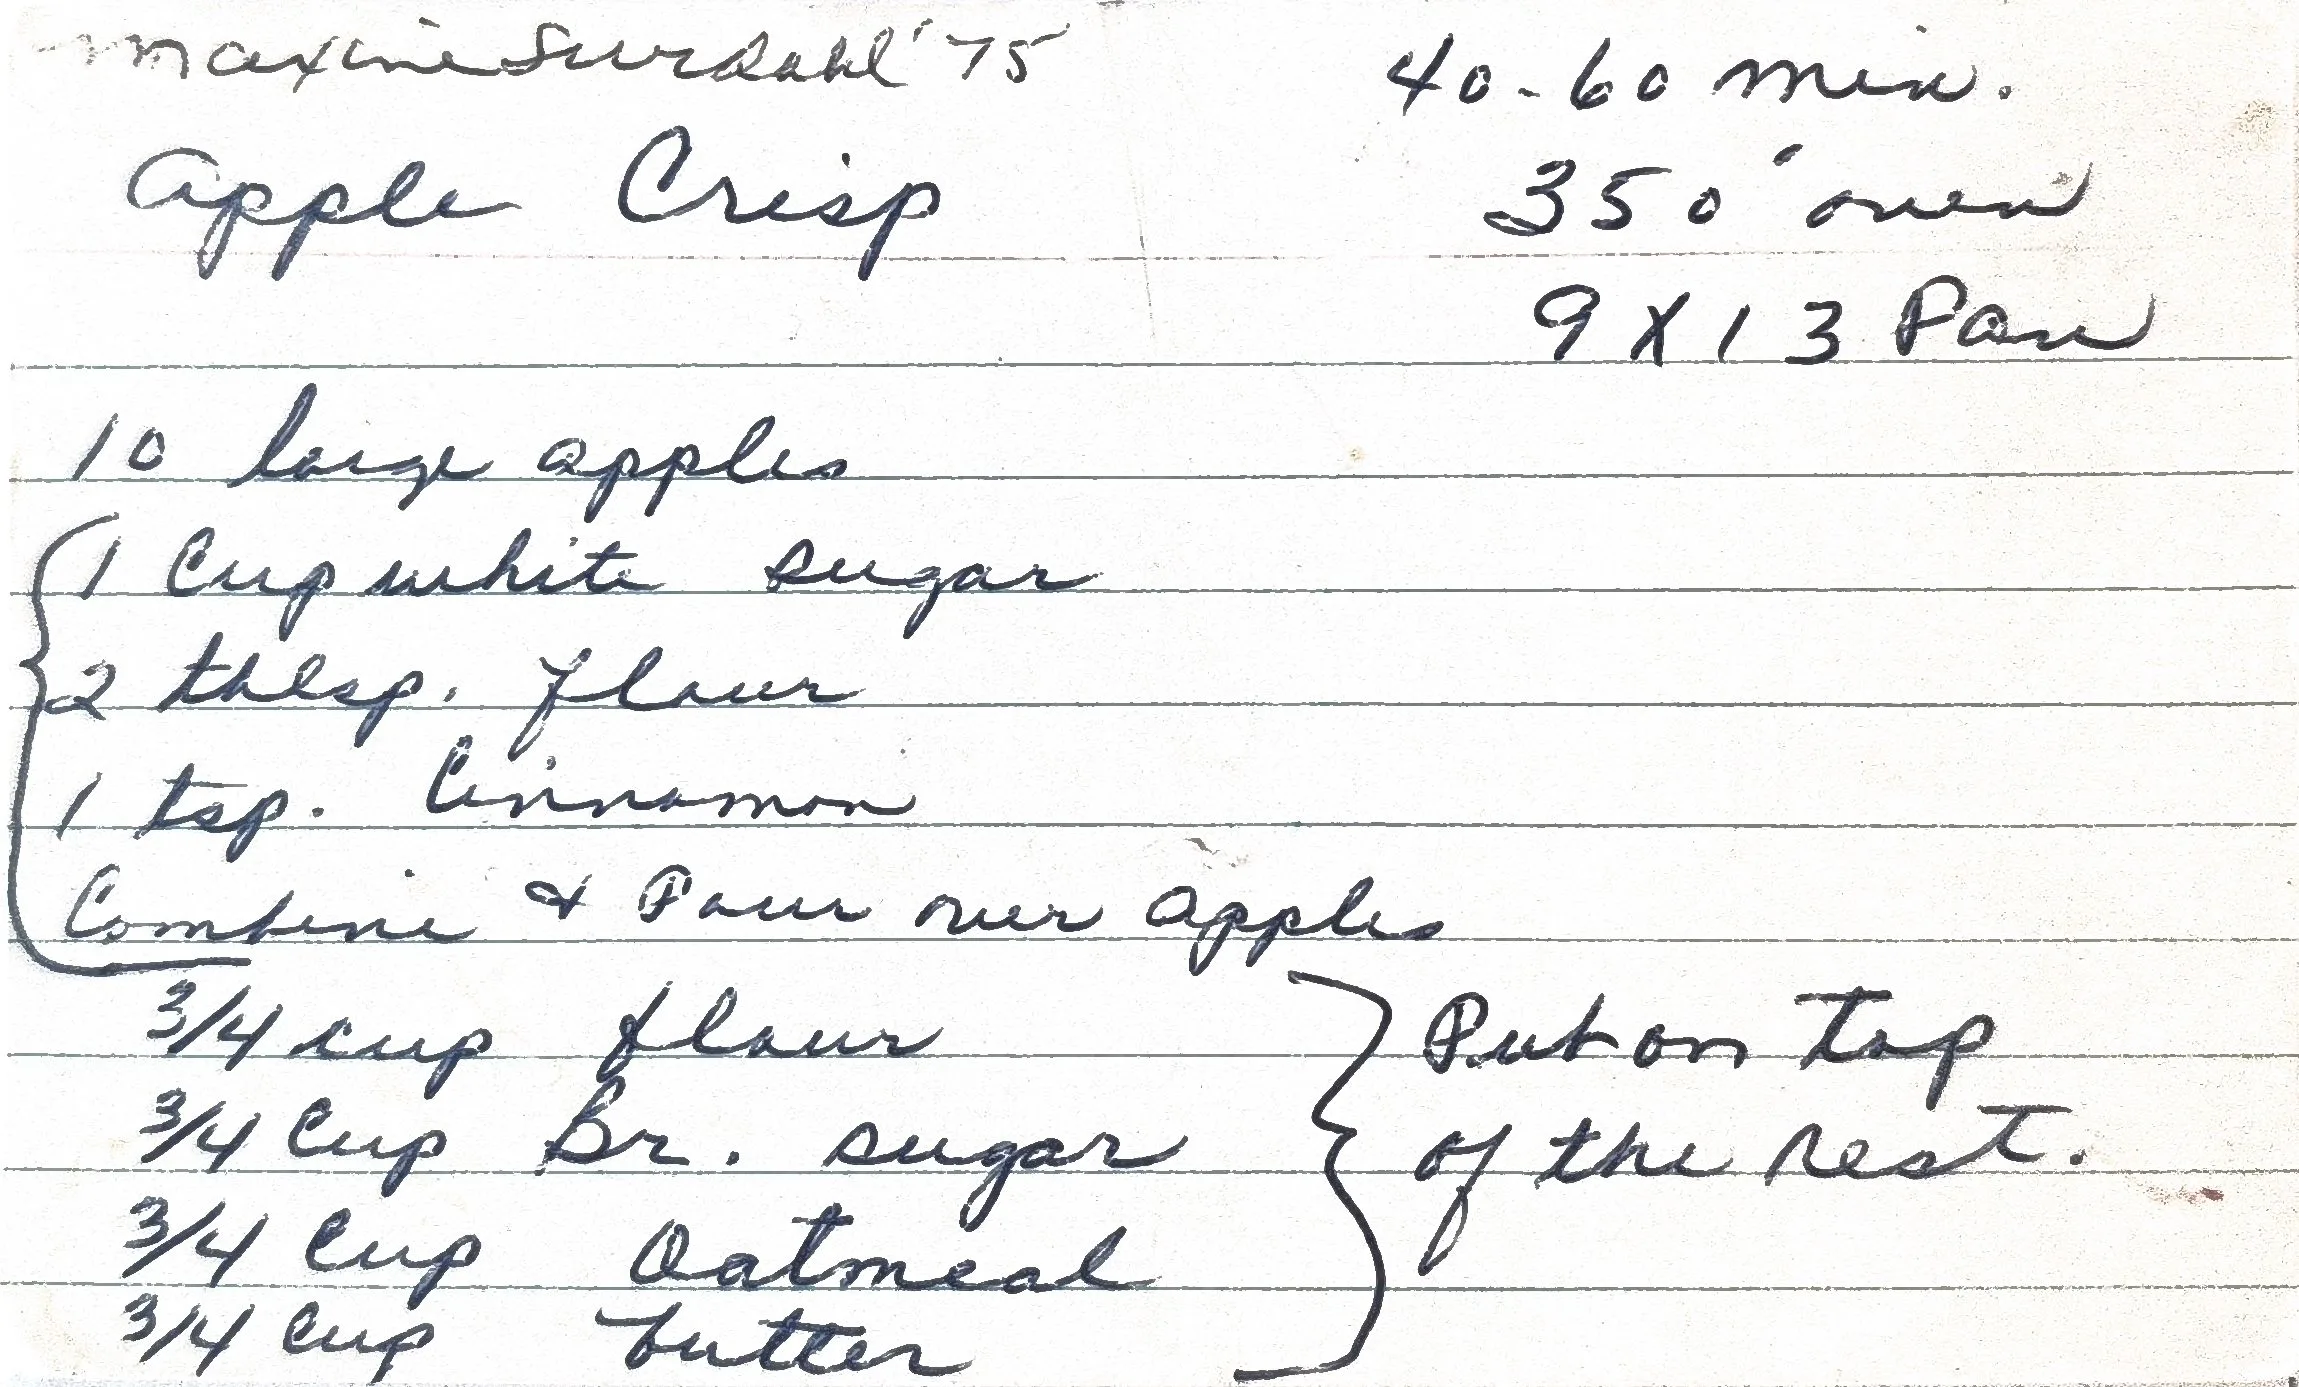 Maxine Surdahl '75
40-60 min.
Apple Crisp
350° oven
9 X 13 Pan
10 large apples
1 Cup white sugar
2 tblsp. flour
1 tsp. Cinnamon
Combine & Pour over apples
3/4 cup flour
3/4 Cup Br. sugar
3/4 Cup Oatmeal
3/4 Cup butter
Put on top
of the rest.